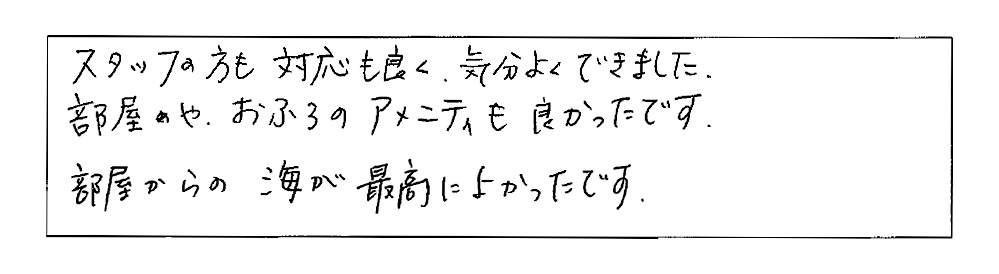 スタッフの方も 対応も良く、気分よくできました。
部屋のや、おふろの アメニティも 良かったです。
部屋からの 海が 最高によかったです。